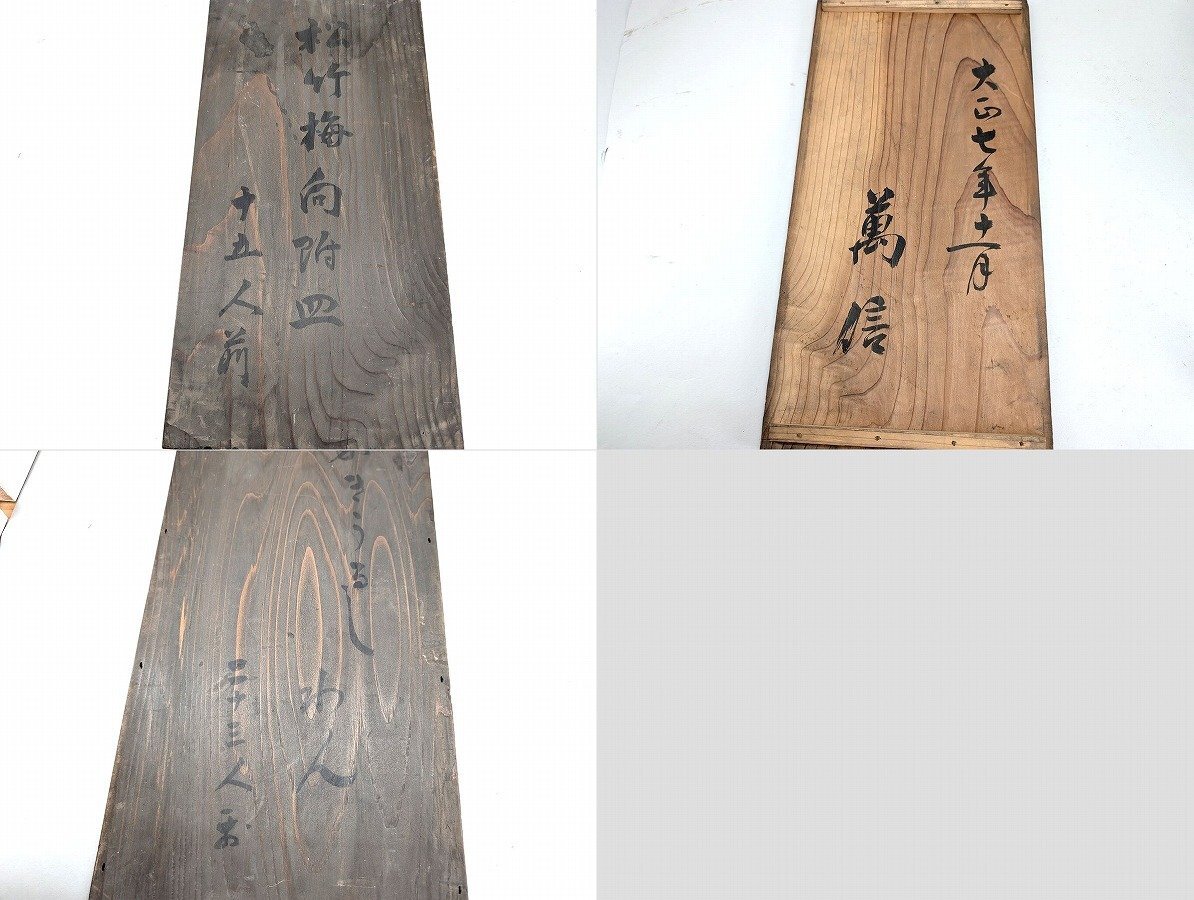 松竹梅向附皿
十五人前
大正七年十一月
萬信
きうるし
わん
二十三人前